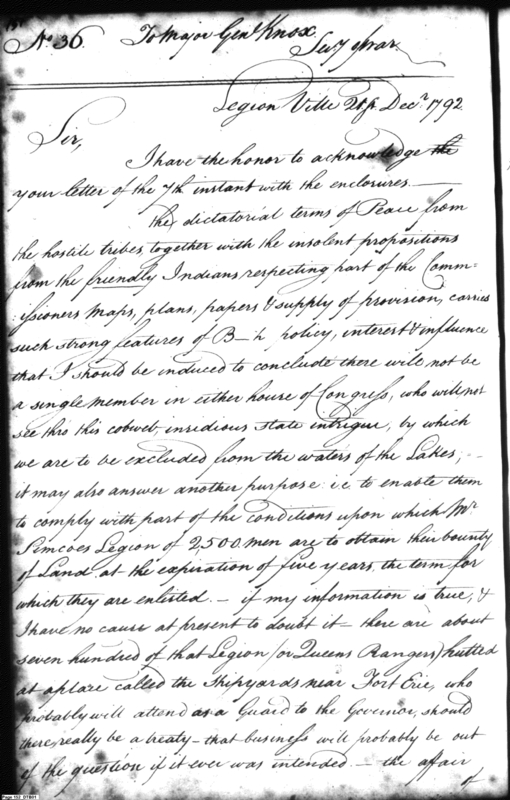 No 36. To Major Genl. Knox.
Secy of war.
Legion Ville Decr. 1792
Sir,
I have the honor to acknowledge the
your letter of the 7th instant with the enclosures.—
The dictatorial terms of Peace from
the hostile tribes, together with the insolent propositions
from the friendly Indians respecting part of the Comm=
:issioners Maps, plans, papers & supply of provision, carries
such strong features of B—h policy, interest & influence
that I should be induced to conclude there will not be
a single member in either house of Congress, who will not
see thro this cobweb insidious state intrigue, by which
we are to be excluded from the waters of the Lakes,—
it may also answer another purpose i:e to enable them
to comply with part of the conditions upon which Mr
Simcoes Legion of 2,500 men are to obtain their bounty
of Land at the expiration of five years, the term for
which they are enlisted.— if my information is true, &
I have no cause at present to doubt it— there are about
seven hundred of that Legion (or Queens Rangers) hutted
at a place called the Shipyards near Fort Erie, who
probably will attend as a Guard to the Governor, should
there really be a treaty— that business will probably be out
of the question if it ever was intended.— the affair
of
Page 152